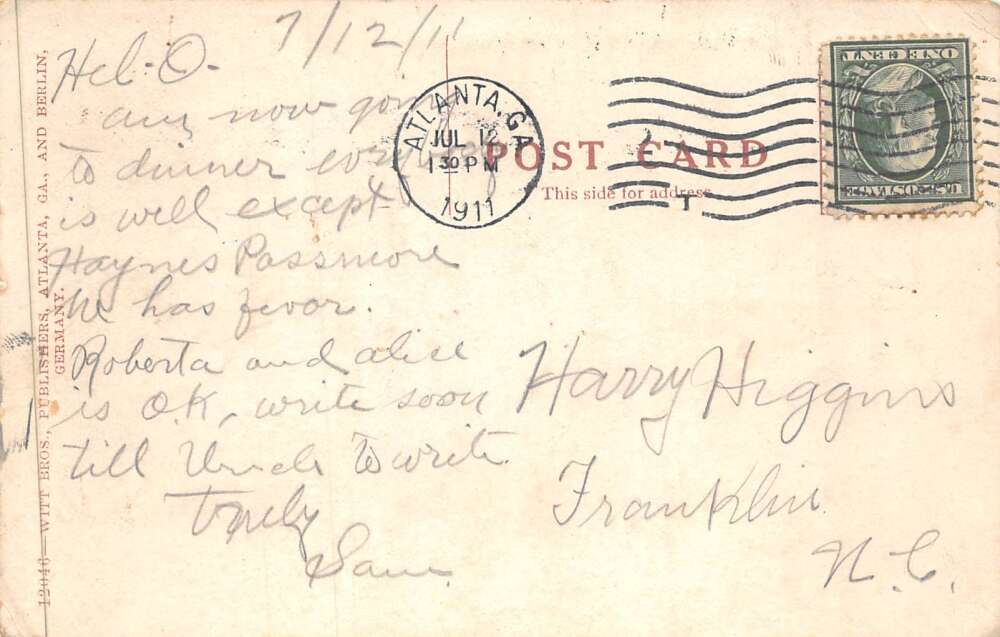 7/12/11
Hel-O-
am now going
to dinner every
is well except
Haynes Passmore
he has fevor.
Roberta and alice
is O.K. write soon
till Uncle to write
Truly
Sam.
ATLANTA, GA.
JUL 12
1 30 PM
1911
POST CARD
This side for address.
T
ONE CENT
U.S. POSTAGE
Harry Higgins
Franklin
N.C.
12046—WITT BROS., PUBLISHERS, ATLANTA, GA., AND BERLIN,
GERMANY.